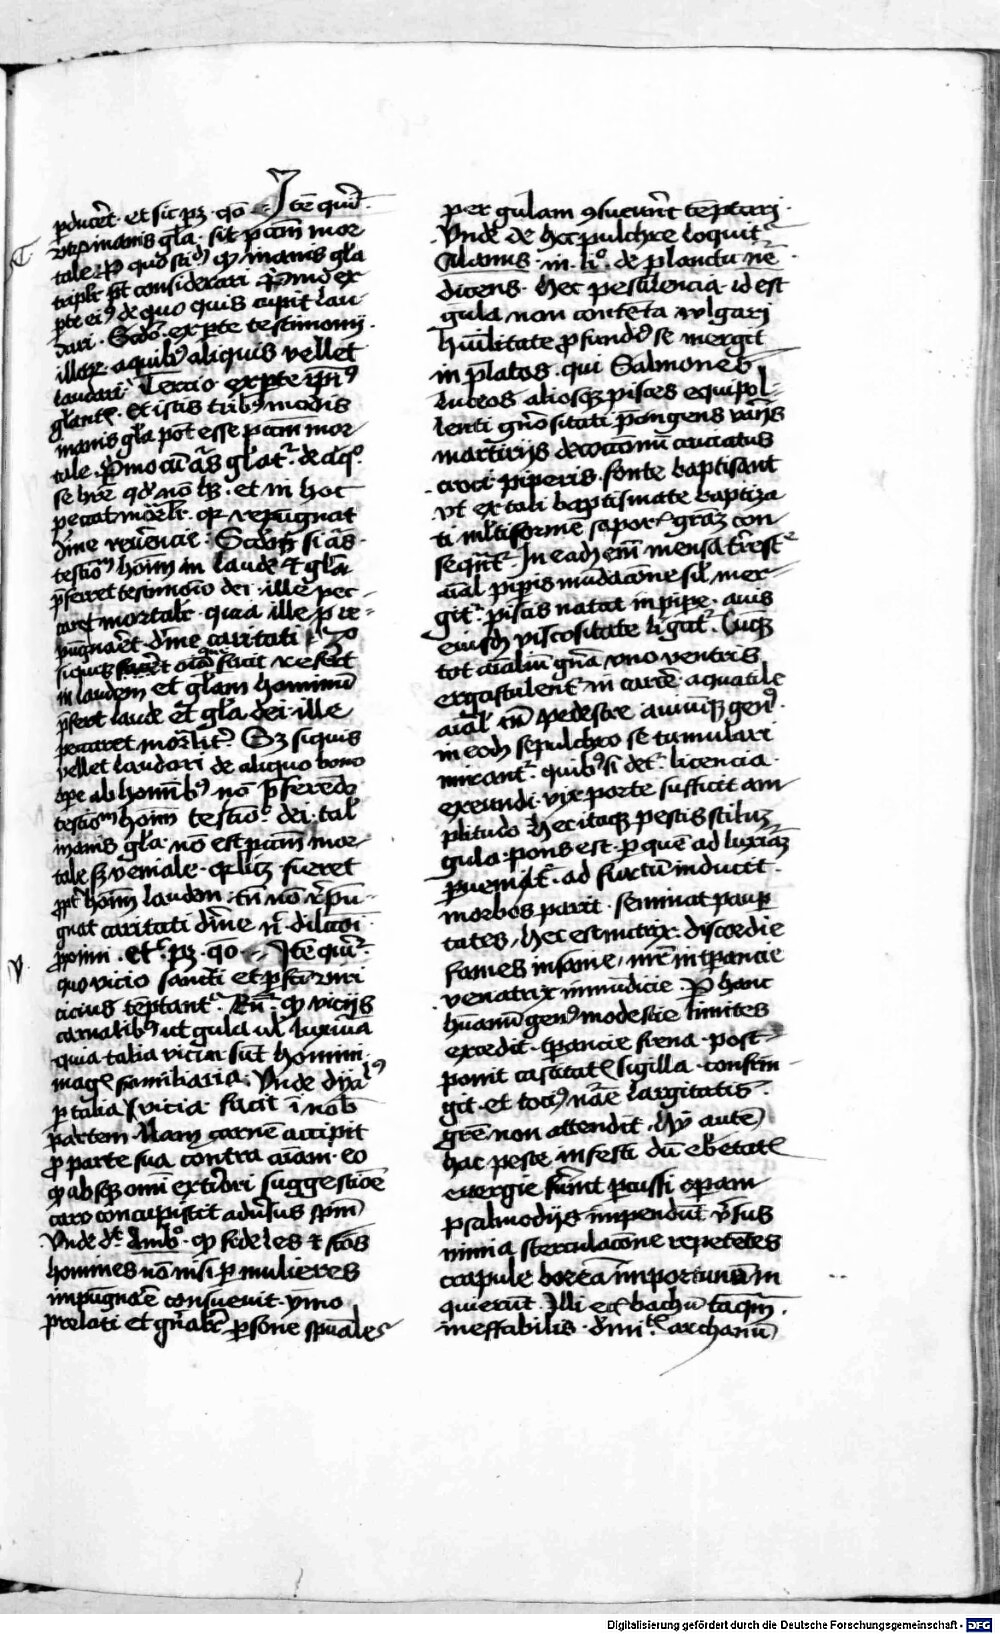 pducēt · et sic pꝫ · qō · Itē querit̉
vtꝝ inanis gl̄a · sit pctm̄ mor
tale · Rō quo scid̄ꝫ qꝫ inanis gl̄a
triplr̄ pt̄ considerari · primo ex
pte eiꝰ de quo quis cupit lau
dari · Scdo · ex pte testimonij ·
illoꝝ · a quibꝰ aliquis vellet
laudari · Tercio ex pte ipiꝰ
glant̉ · Et istis tribꝰ modis
inanis gl̄a pōt esse pctm̄ mor
tale · Primo cū aliqs gl̄at̉ · de aliqº
se hr̄e qd̄ nō hꝫ · et in hoc
peccat mōrlr̄ · qꝛ repugnat
diuīe reuerencie · Scdo si ali
testioꝫ hoīm in laude et gl̄ia
p̄ferret testimōio dei · ille pec
caret mortalr̄ · quia ille p re
pugnaēt · diuīe caritati
siquis oīa que facit refert
in laudem et gl̄am hominū
p̄fert laude et gl̄a dei · ille
peccaret mōrlit̉ · Sꝫ siquis
vellet laudari de aliquo bono
ope ab hominibꝰ nō p̄ferēdo
testioꝫ hoīm testioº dei · tal̄
inanis gl̄a · nō est pctm̄ mor
tale sꝫ veniale · qꝛ licꝫ fueret
ppt̉ hoīm laudem · tn̄ nō repu
gnat caritati diuīe nec dilcōi
pximi · Et sic pꝫ · qō · Itē querit̉
quo vicio sancti et pfecti viri
cicius temptant̉ · Rn̄t̉ · qꝫ vicijs
carnalibꝰ ut gula ul̄ luxuria
quia talia vicia sūt homini
mag̉ familiaria · Vnde dyaꝰ
p talia vicia facit ī nobis
partem · Nam carnē accipit
pro parte sua contra aīam · eo
qꝫ absqꝫ omī exteriori suggestiōe
caro concupiscit aduersus spm̄
Vnde dt̄ Ambº · qꝫ fideles et scōs
homines nō nisi p mulieres
impugnāe consueuit · ymo
prelati et gn̄alr̄ psone spūales
per gulam ꝯsueuert tēptari ·
Vnde de hoc pulchre loquit̉
Alanus · in liº · de planctu nē
dicens · Hec pestilencia · id est
gula non contēta vulgari
huīlitate profundiꝰ se mergit
in platos · qui Salmones
luceos aliosqꝫ pisces equipol
lenti gn̄ositati p̄angens varijs
martirijs decoctionū cruciatus
croci piperis · fonte baptisant
vt ex tali baptismate baptiza
ti multiformē sapor̄ gr̄az con
seqn̄t̉ · In eadꝫ em̄ mensa trestre
aīal pipis inūdacōne sil̄ mer
git̉ · piscis natat in pipe · auis
eiusdꝫ viscositate ligat̉ · Cūqꝫ
tot aīaliū gn̄a vno ventris
ergastulent̉ in carcē · aquatile
aīal cū pedestre auiūqꝫ genꝰ ·
in eodꝫ sepulchro se tumulari
mirant̉ · quibꝰ si det̉ · licencia ·
exeundi · vix porte sufficit am
plitudo · Hec itaqꝫ pestis scilicet
gula · pons est · p quē ad luxuriā
pueniat̉ · ad furtum inducit ·
morbos parit · seminat paup
tates · Hec est nutrix · discordie
fames insanie, mr̄ intpancie
venatrix inmūdicie · P hanc
humanū genꝰ modestie limites
excedit · tpancie frena · post
ponit castitatꝭ sigilla · confrin
git · et tociꝰ nature largitatis ·
grē non attendit · Hij autē
hac peste infesti dū ebetate
energie fuerint pcussi opam
psalmodijs impendūt v̄sus
nimia sterculacōne repetētes
crapule boreā importunū in
quierūt · Illi eciā bachū taqm̄ ·
ineffabilis · diuitꝭ archanū
Digitalisierung gefördert durch die Deutsche Forschungsgemeinschaft - DFG